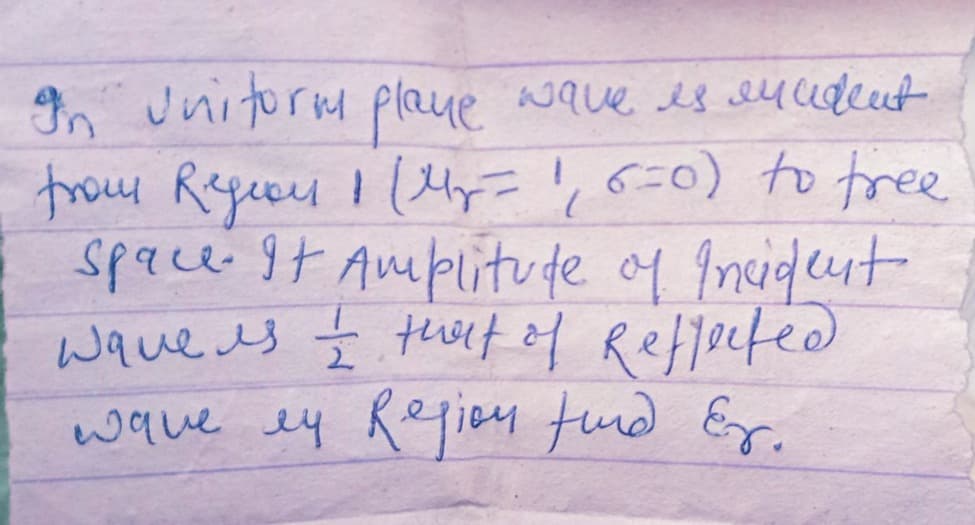 In Uniform plane wave is incident
from Region 1 (μr = 1, σ=0) to free
space. If Amplitude of Incident
wave is 1/2 that of Reflected
wave in Region find εr.